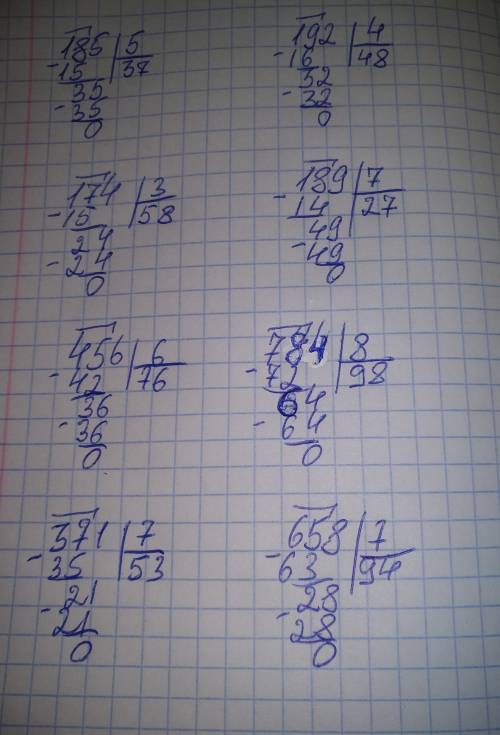 185 | 5
-15 | 37
35
-35
0
192 | 4
-16 | 48
32
-32
0
174 | 3
-15 | 58
24
-24
0
189 | 7
-14 | 27
49
-49
0
456 | 6
-42 | 76
36
-36
0
784 | 8
-72 | 98
64
-64
0
371 | 7
-35 | 53
21
-21
0
658 | 7
-63 | 94
28
-28
0